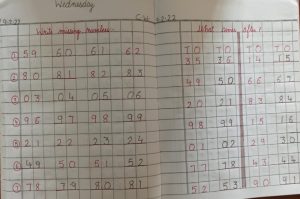 Wednesday
Write missing numbers
① 59 60 61 62
② 80 81 82 83
③ 03 04 05 06
④ 96 97 98 99
⑤ 21 22 23 24
⑥ 49 50 51 52
⑦ 78 79 80 81
C.W.
What comes after?
TO TO TO TO
35 36 14 15
49 50 66 67
20 21 83 84
98 99 15 16
01 02 29 30
77 78 43 44
52 53 90 91